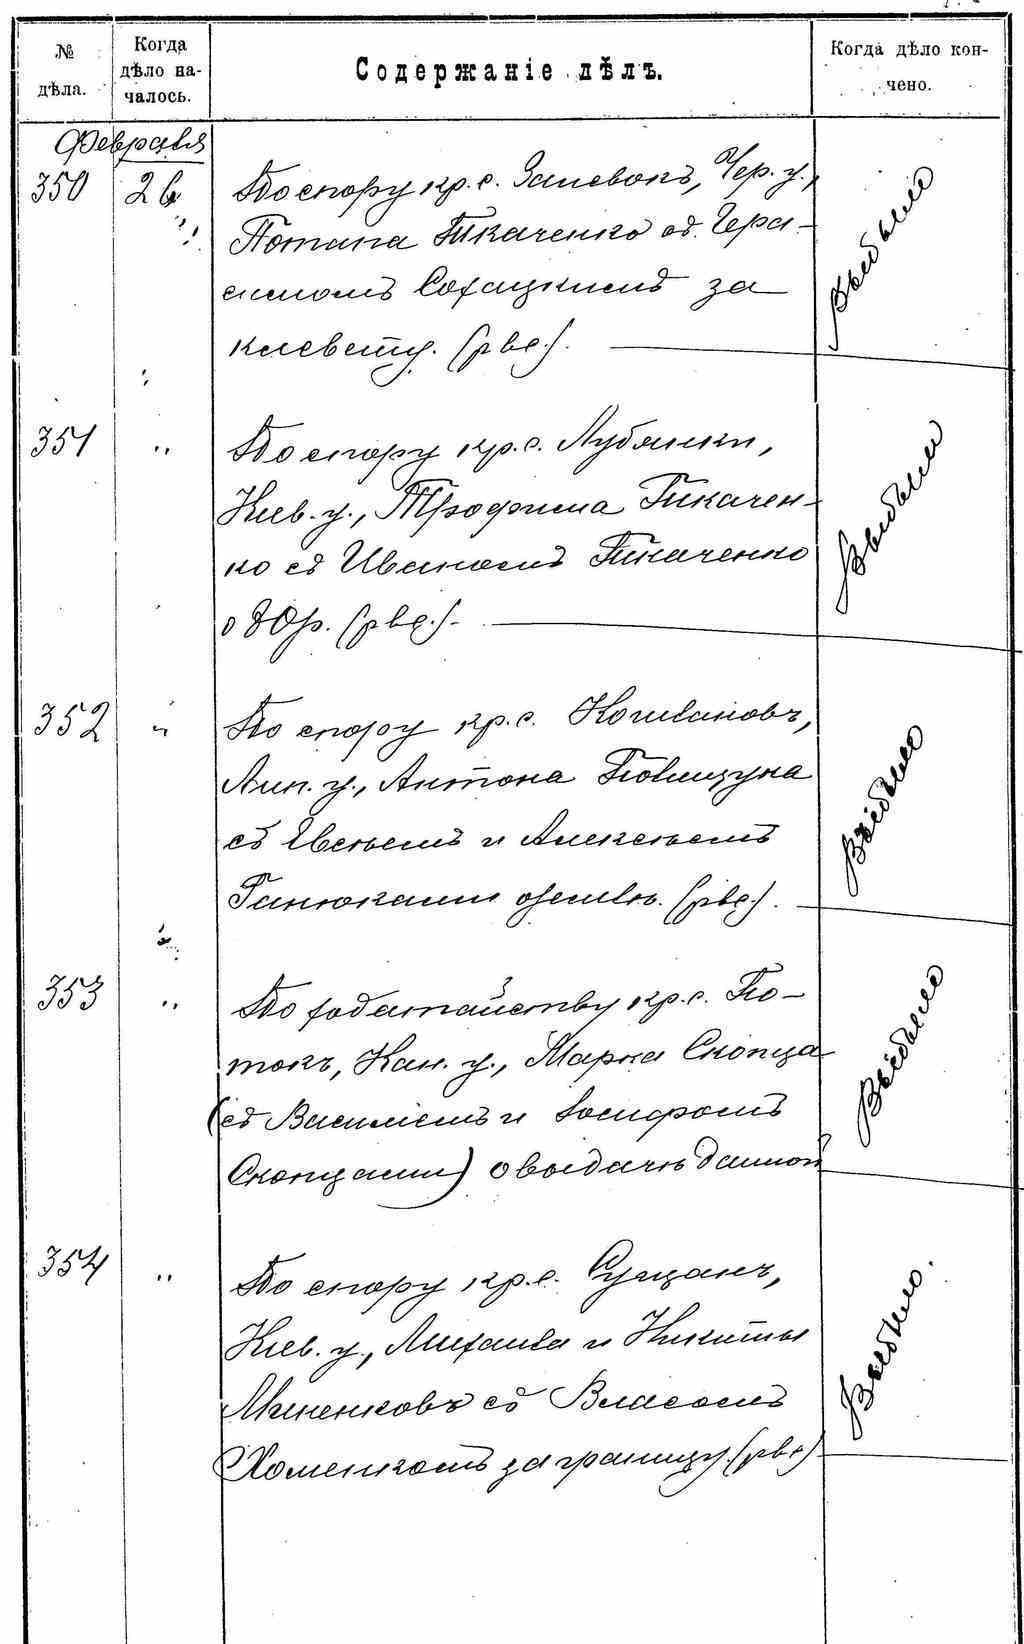 № дѣла.
Когда дѣло на-
чалось.
Содержаніе дѣлъ.
Когда дѣло кон-
чено.
Февраля
350
26
По спору кр. с. Залевокъ, Чер. у.,
Потапа Ткаченко съ Гера-
симомъ Сохацкимъ за
клевету. (рве.).
Выбыло
351
"
По спору кр. с. Лубянки,
Кіев. у., Трофима Ткачен-
ко съ Иваномъ Ткаченко
о 80 р. (рве.).
Выбыли
352
"
По спору кр. с. Кошлановъ,
Лип. у., Антона Повищука
съ Евсѣемъ и Алексѣемъ
Ганюками о землѣ. (рве.).
Выбыло
353
"
По ходатайству кр. с. По-
токъ, Кан. у., Марка Скопца
(съ Василіемъ и Іосифомъ
Скопцами) о выдачѣ данной
Выбыло
354
"
По спору кр. с. Сущанъ,
Кіев. у., Михаила и Никиты
Миненковъ съ Власомъ
Хоменкомъ за границу. (рве)
Выбыло.